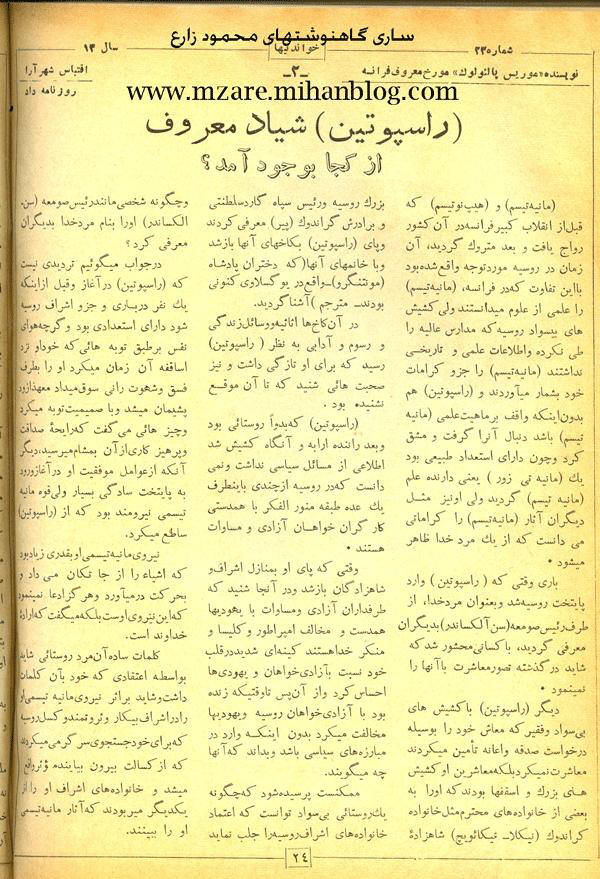 ساری گاهنوشتهای محمود زارع
شماره ۲۳
خواندنیها
سال ۱۳
نویسنده «موریس پالئولوك» مورخ معروف فرانسه
-۳-
اقتباس شهر آرا
روزنامه داد
www.mzare.mihanblog.com
(راسپوتین) شیاد معروف
از کجا بوجود آمد؟
(مانیه‌تیسم) و (هیپ‌نوتیسم) که
قبل از انقلاب کبیر فرانسه در آن کشور
رواج یافت و بعد متروك گردید، آن
زمان در روسیه مورد توجه واقع شده بود
با این تفاوت که در فرانسه، (مانیه‌تیسم)
را علمی از علوم میدانستند ولی کشیش
های بیسواد روسیه که مدارس عالیه را
طی نکرده و اطلاعات علمی و تاریخی
نداشتند (مانیه‌تیسم) را جزو کرامات
خود بشمار میآوردند و (راسپوتین) هم
بدون اینکه واقف بر ماهیت علمی (مانیه
تیسم) باشد دنبال آنرا گرفت و مشق
کرد وچون دارای استعداد طبیعی بود
یك (مانیه تی زور) یعنی دارنده علم
(مانیه تیسم) گردید ولی او نیز مثل
دیگران آثار (مانیه‌تیسم) را کراماتی
می دانست که از یك مرد خدا ظاهر
میشود.
باری وقتی که (راسپوتین) وارد
پایتخت روسیه شد وبعنوان مرد خدا، از
طرف رئیس صومعه (سن آلکساندر) بدیگران
معرفی گردید، با کسانی محشور شد که
شاید در گذشته تصور معاشرت با آنها را
نمینمود.
دیگر (راسپوتین) با کشیش های
بی‌سواد وفقیر که معاش خود را بوسیله
درخواست صدقه واعانه تأمین میکردند
معاشرت نمیکرد بلکه معاشرین او کشیش
های بزرك و اسقفها بودند که او را به
بعضی از خانواده‌های محترم مثل خانواده
گراندوك (نیکلا ـ نیکائویچ) شاهزادهٔ
بزرك روسیه ورئیس سپاه گارد سلطنتی
و برادرش گراندوك (پیر) معرفی کردند
وپای (راسپوتین) بکاخهای آنها باز شد
وبا خانمهای آنها (که دختران پادشاه
(مونتنگرو)ـ واقع در یوگسلاوی کنونی
بودند ـ مترجم) آشنا گردید.
در آن کاخها اثاثیه ووسائل زندگی
و رسوم و آدابی به نظر (راسپوتین)
رسید که برای او تازگی داشت و نیز
صحبت هائی شنید که تا آن موقع
نشنیده بود.
(راسپوتین) که بدواً روستائی بود
وبعد راننده ارابه و آنگاه کشیش شد
اطلاعی از مسائل سیاسی نداشت ونمی
دانست که در روسیه از چندی باینطرف
یك عده طبقه منور الفکر با همدستی
کارگران خواهان آزادی و مساوات
هستند.
وقتی که پای او بمنازل اشراف و
شاهزادگان باز شد ودر آنجا شنید که
طرفداران آزادی ومساوات با یهودیها
همدست و مخالف امپراطور و کلیسا و
منکر خدا هستند کینه‌ای شدید در قلب
خود نسبت بآزادی‌خواهان و یهودی‌ها
احساس کرد و از آن پس تا وقتیکه زنده
بود با آزادی‌خواهان روسیه ویهودیها
مخالفت میکرد بدون اینکه وارد در
مبارزه‌های سیاسی باشد وبداند که آنها
چه میگویند.
ممکنست پرسیده شود که چگونه
یك روستائی بی‌سواد توانست که اعتماد
خانواده‌های اشراف روسیه را جلب نماید
وچگونه شخصی مانند رئیس صومعه (سن
الکساندر) او را بنام مرد خدا بدیگران
معرفی کرد؟
در جواب میگوئیم تردیدی نیست
که (راسپوتین) در آغاز وقبل از اینکه
یك نفر درباری و جزو اشراف روسیه
شود دارای استعدادی بود و گرچه هوای
نفس برطبق توبه هائی که خود او نزد
اساقفه آن زمان میکرد او را بطرف
فسق وشهوت رانی سوق میداد معهذا زود
پشیمان میشد وبا صمیمیت توبه میکرد
وچیز هائی می گفت که رایحهٔ صداقت
وپرهیز کاری از آن بمشام میرسید، دیگر
آنکه از عوامل موفقیت او در آغاز ورود
به پایتخت سادگی بسیار ولی قوه مانیه
تیسمی نیرومند بود که از (راسپوتین)
ساطع میکرد.
نیروی مانیه‌تیسمی او بقدری زیاد بود
که اشیاء را از جا تکان می داد و
بحرکت درمیآورد وهر گز ادعا نمینمود
که این نیروی اوست بلکه میگفت که ارادهٔ
خداوند است.
کلمات ساده آن مرد روستائی شاید
بواسطه اعتقادی که خود بآن کلمات
داشت وشاید براثر نیروی مانیه تیسمی او
را در اشراف بیکار وثروتمند وکسل روسیه
که برای خود جستجوی سر گرمی میکردند
که از کسالت بیرون بیایند مؤثر واقع
میشد و خانواده‌های اشراف او را از
یکدیگر میربودند که آثار مانیه‌تیسمی
او را ببینند.
۲۴